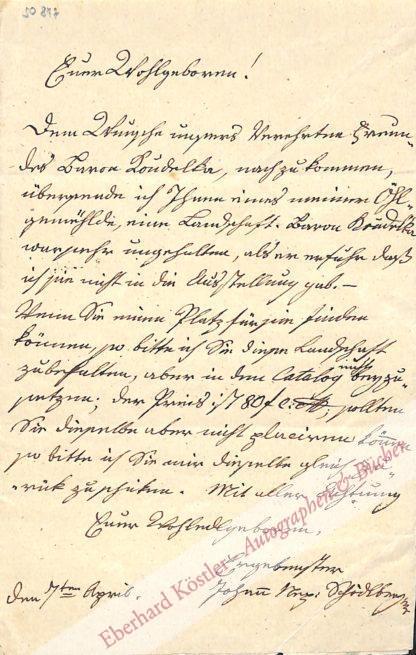 50847
Euer Wohlgeboren!
Dem Wunsche unsers Verehrten Freun-
des Baron Koudelka, nachzukommen,
übersende ich Ihnen eines meiner Öhl-
gemählde, eine Landschaft. Baron Koudelka
war sehr ungehalten, als er erfuhr daß
ich sie nicht in die Ausstellung gab. —
Wenn Sie einen Platz für sie finden
können, so bitte ich Sie diese Landschaft
zu behalten, aber in dem Catalog nicht beyzu-
setzen; der Preis ist 80 f C:M: sollten
Sie dieselbe aber nicht placiren können
so bitte ich Sie mir dieselbe gleich zu-
rück zu schicken. Mit aller Achtung
Euer Wohledlgeboren,
Ergebenster
den 7ten April. Johann Nep: Schödlberger
Eberhard Köstler - Autographen & Bücher